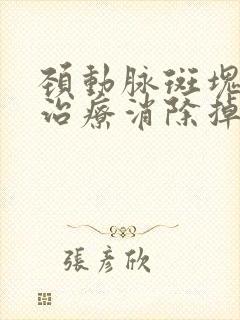 頸動脉斑塊
治療消除掉
張彥欣